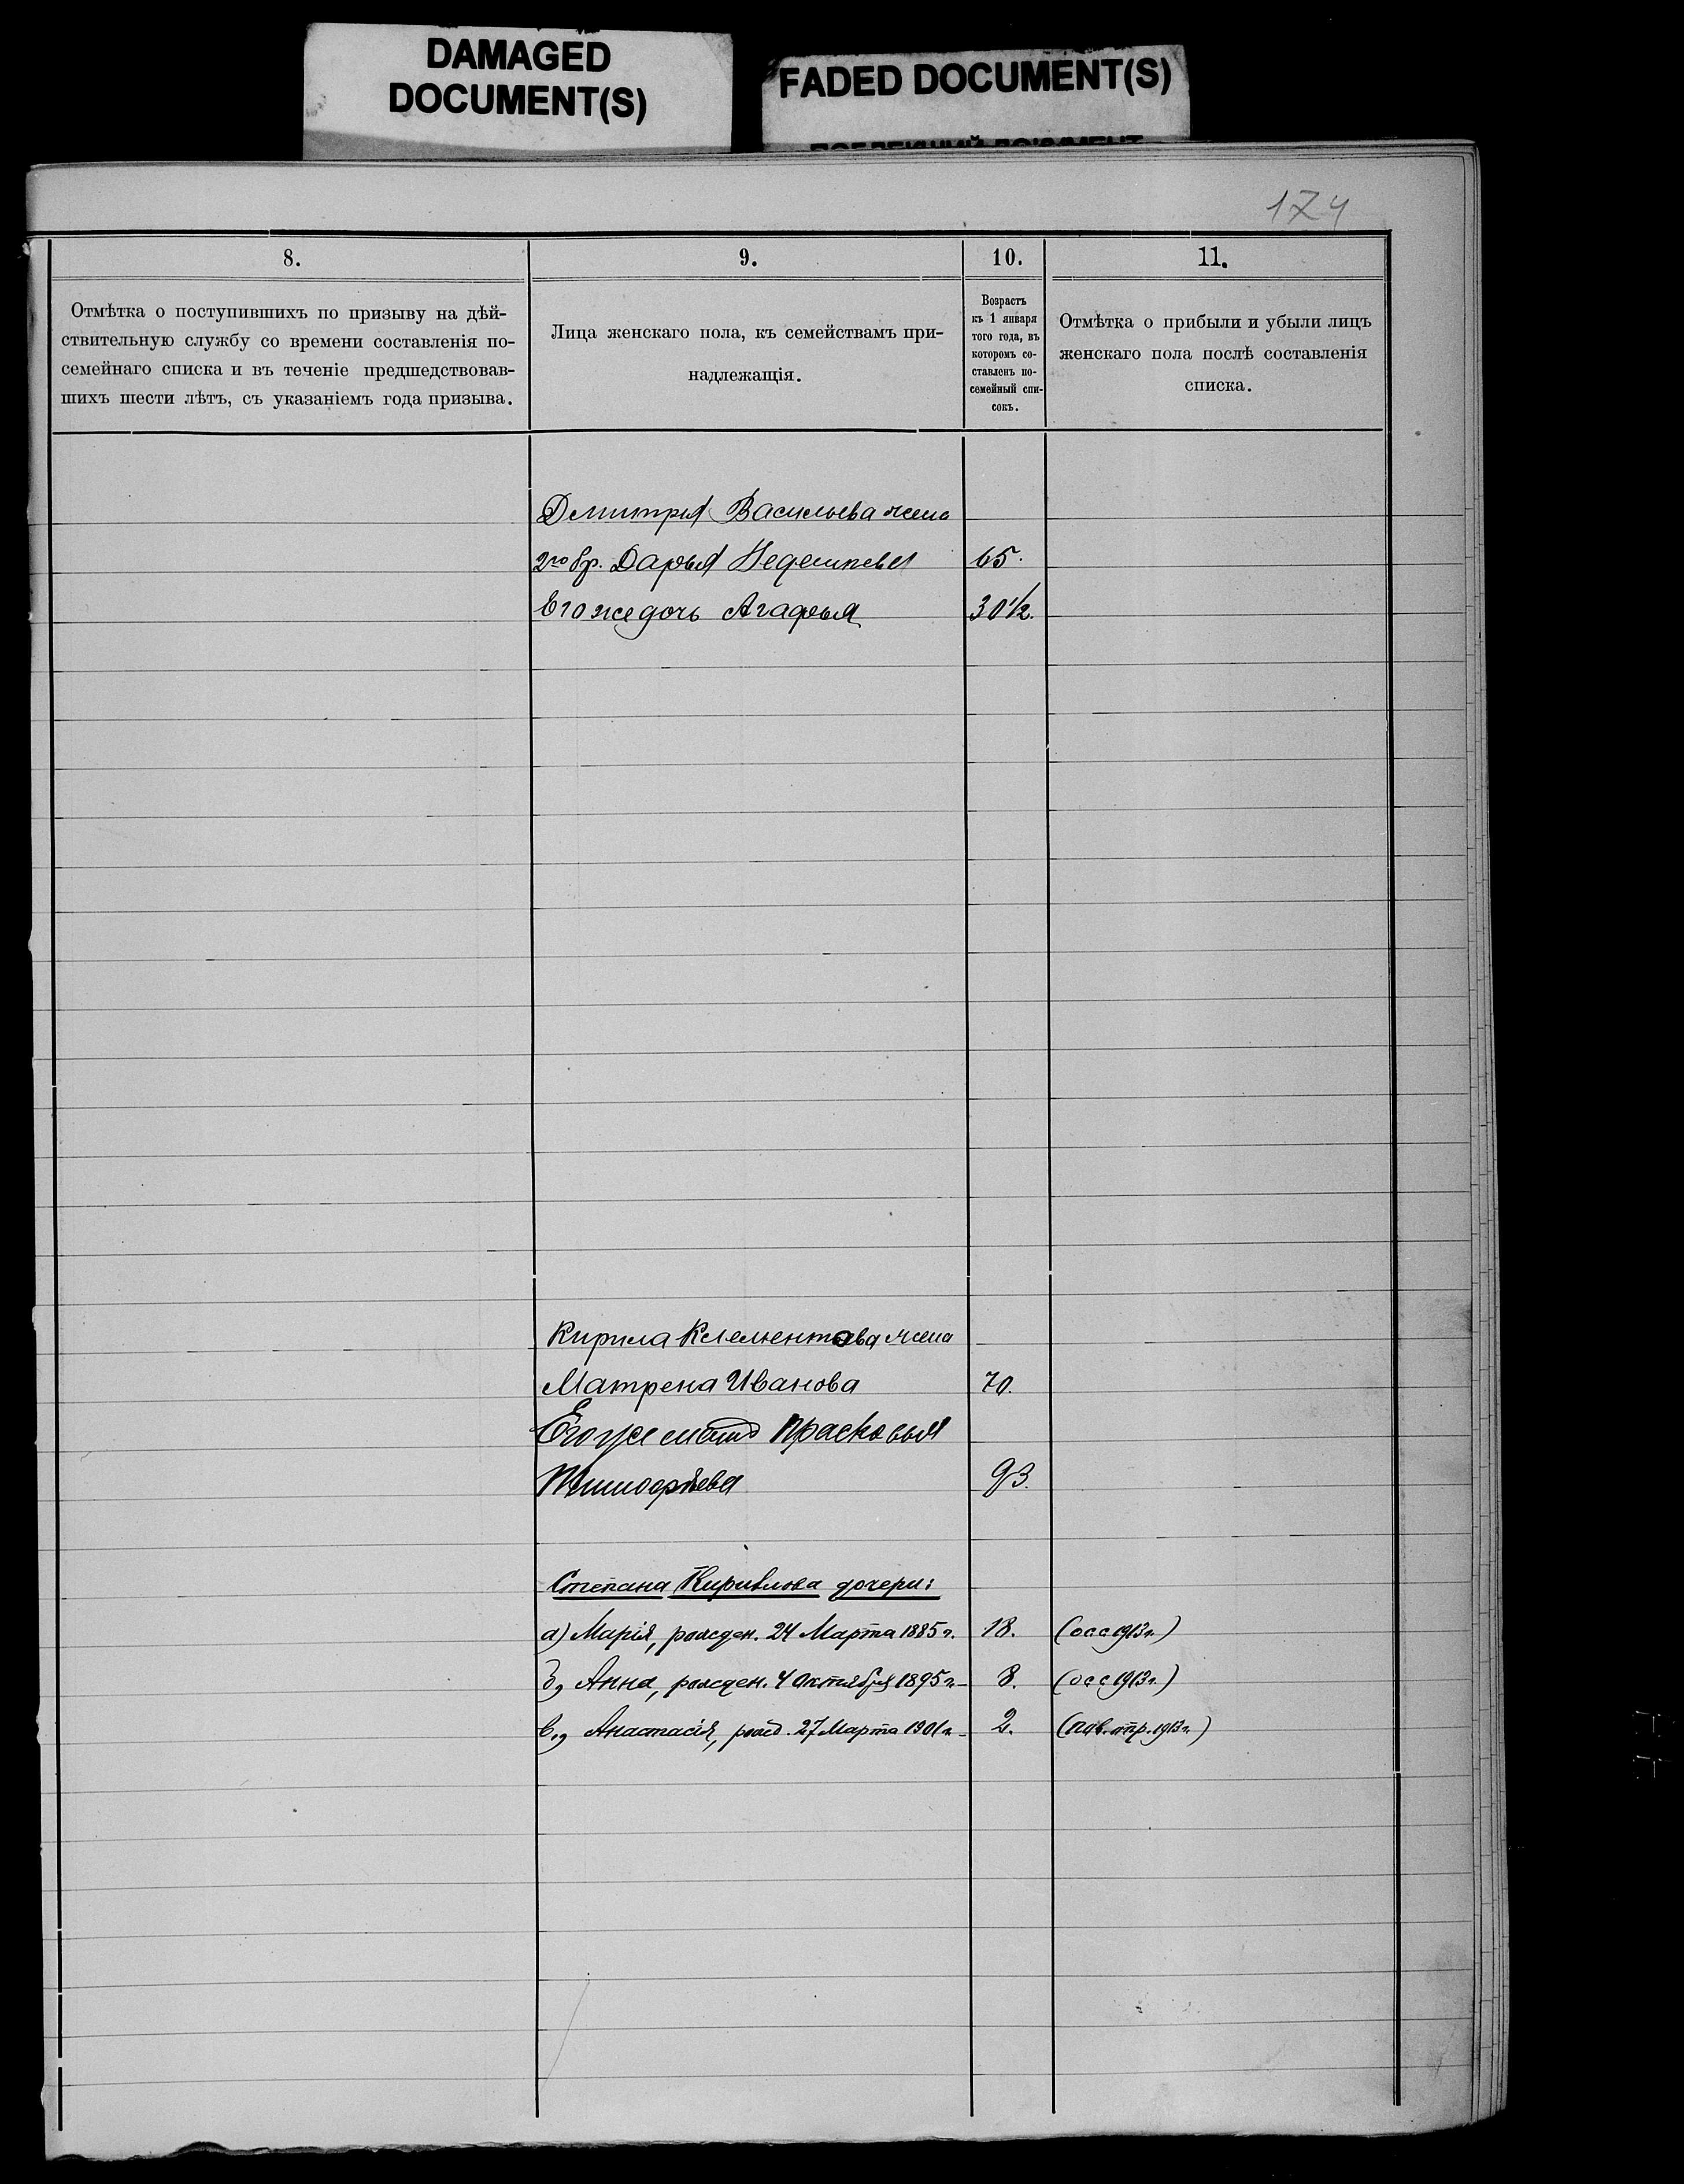 DAMAGED
DOCUMENT(S)
FADED DOCUMENT(S)
174
8.
9.
10.
11.
Отмѣтка о поступившихъ по призыву на дѣй-
ствительную службу со времени составленія по-
семейнаго списка и въ теченіе предшедствовав-
шихъ шести лѣтъ, съ указаніемъ года призыва.
Лица женскаго пола, къ семействамъ при-
надлежащія.
Возрастъ
къ 1 января
того года, въ
которомъ со-
ставленъ по-
семейный спи-
сокъ.
Отмѣтка о прибыли и убыли лицъ
женскаго пола послѣ составленія
списка.
Дмитрія Васильева жена
2го бр. Дарья 65.
Его же дочь Агафья 30½.
Кирила Клементова жена
Матрена Иванова 70.
Его же мать Прасковья
Тимофѣева 93.
Степана Кирилова дочери:
а) Марія, рожден. 24 Марта 1885 г. 18. (осс 1913 г.)
б, Анна, рожден. 4 Октября 1895 г. 8. (осс 1913 г.)
в., Анастасія, рожд. 27 Марта 1901 г. 2. 1913 г.)